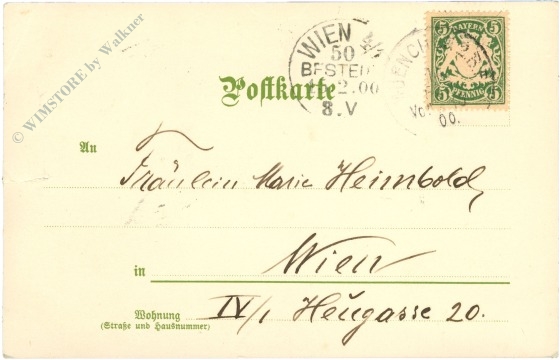 © WIMSTORE by Walkner
WIEN
50
BESTELLT
2.00
8.V
BAYERN
5 5
5 PFENNIG 5
00.
Postkarte
An
Fräulein Marie Heimbold,
in Wien
Wohnung IV/1 Heugasse 20.
(Straße und Hausnummer)